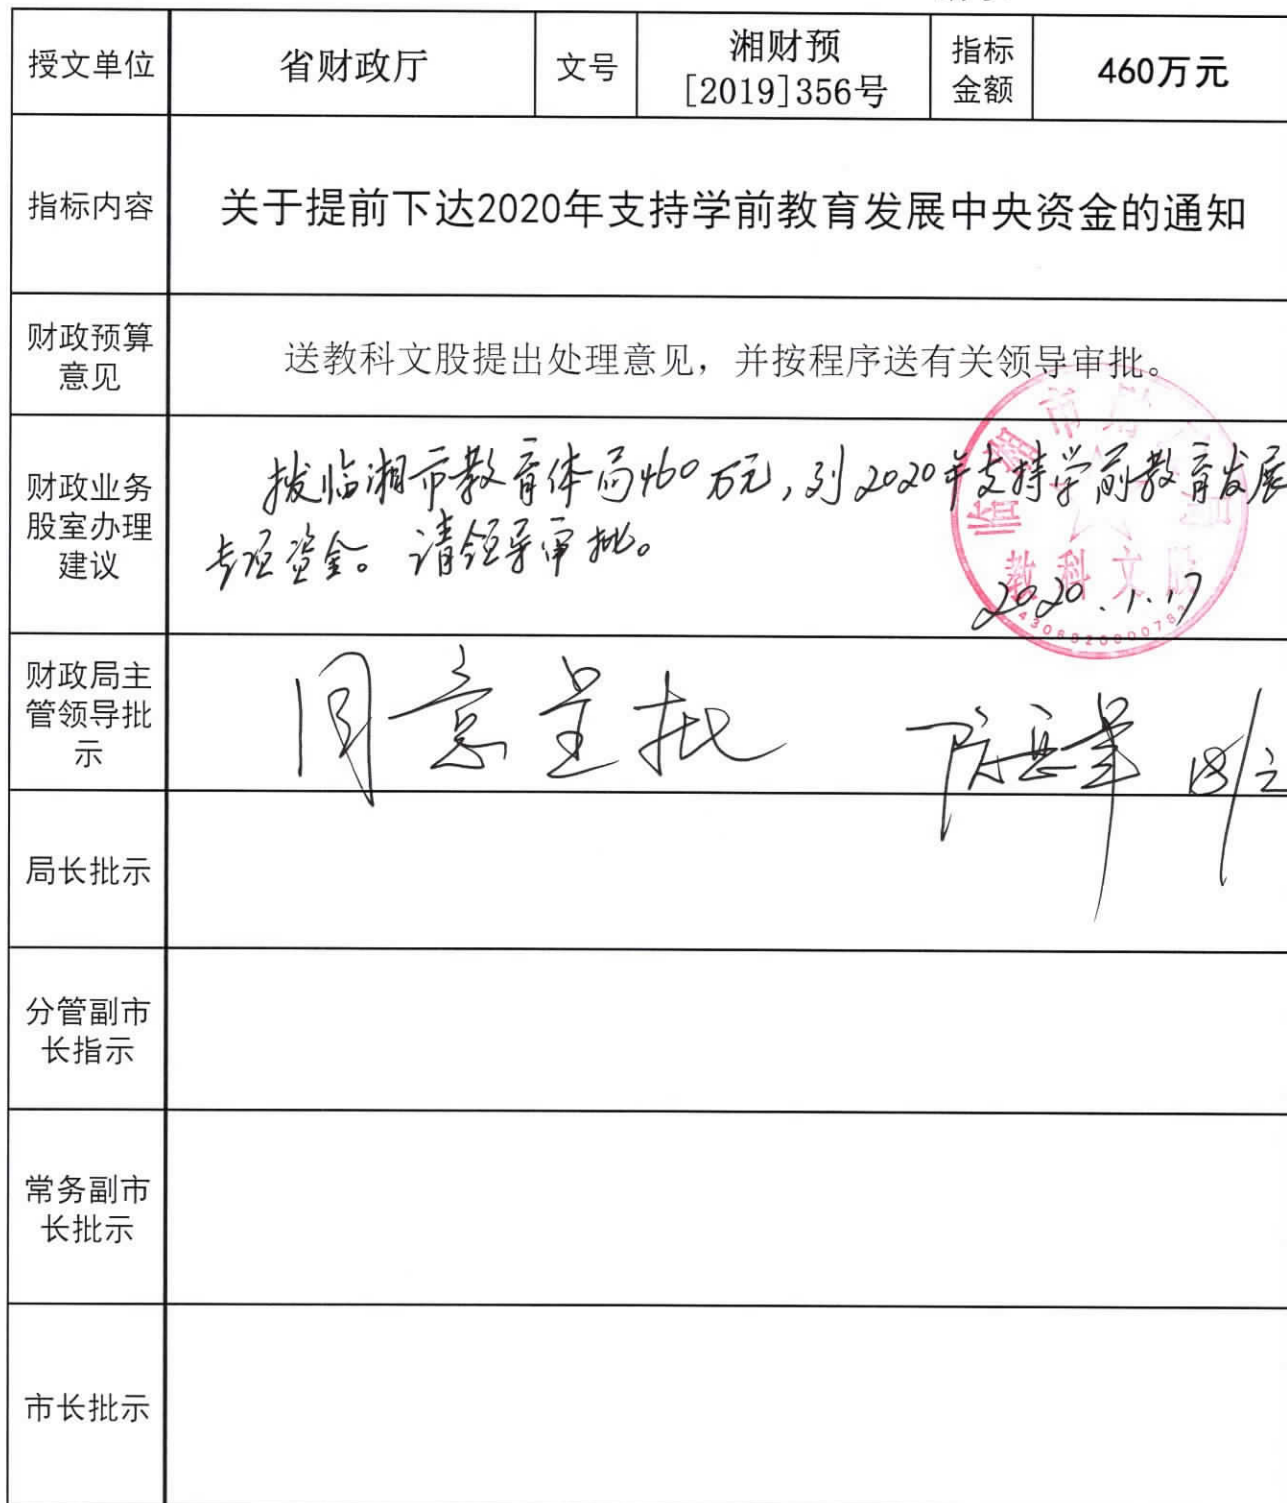 授文单位 省财政厅 文号 湘财预 [2019]356号 指标金额 460万元
指标内容 关于提前下达2020年支持学前教育发展中央资金的通知
财政预算
意见
送教科文股提出处理意见，并按程序送有关领导审批。
财政业务
股室办理
建议
拨临湘市教育体局460万元，列2020年支持学前教育发展
专项资金。请领导审批。
教科文股
2020.1.17
财政局主
管领导批
示
同意呈批
局长批示
分管副市
长指示
常务副市
长批示
市长批示